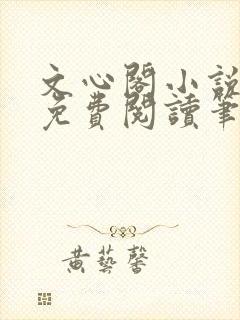 文心閣小說
免費閱讀筆
黃藝馨